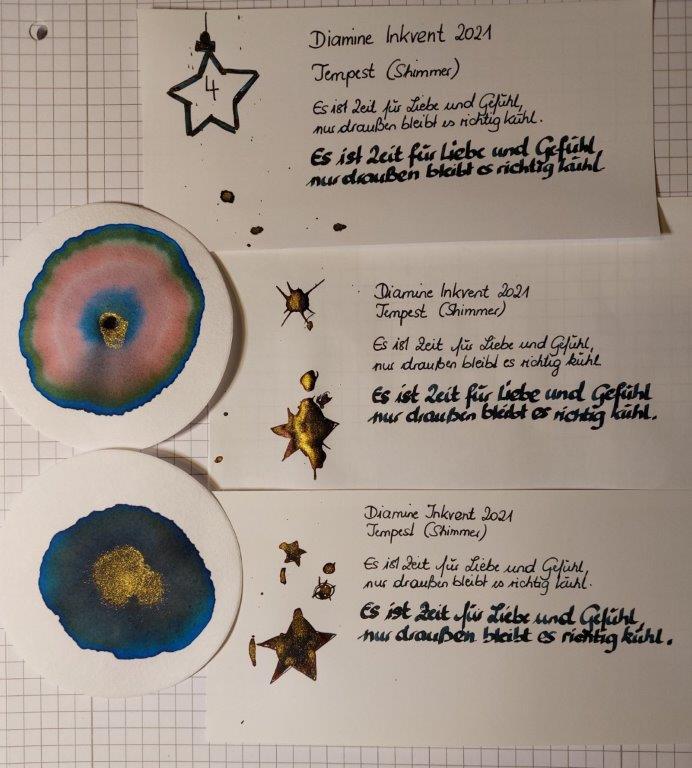 4
Diamine Inkvent 2021
Tempest (Shimmer)
Es ist Zeit für Liebe und Gefühl,
nur draußen bleibt es richtig kühl.
Es ist Zeit für Liebe und Gefühl,
nur draußen bleibt es richtig kühl
Diamine Inkvent 2021
Tempest (Shimmer)
Es ist Zeit für Liebe und Gefühl,
nur draußen bleibt es richtig kühl
Es ist Zeit für Liebe und Gefühl
nur draußen bleibt es richtig kühl.
Diamine Inkvent 2021
Tempest (Shimmer)
Es ist Zeit für Liebe und Gefühl,
nur draußen bleibt es richtig kühl.
Es ist Zeit für Liebe und Gefühl,
nur draußen bleibt es richtig kühl.